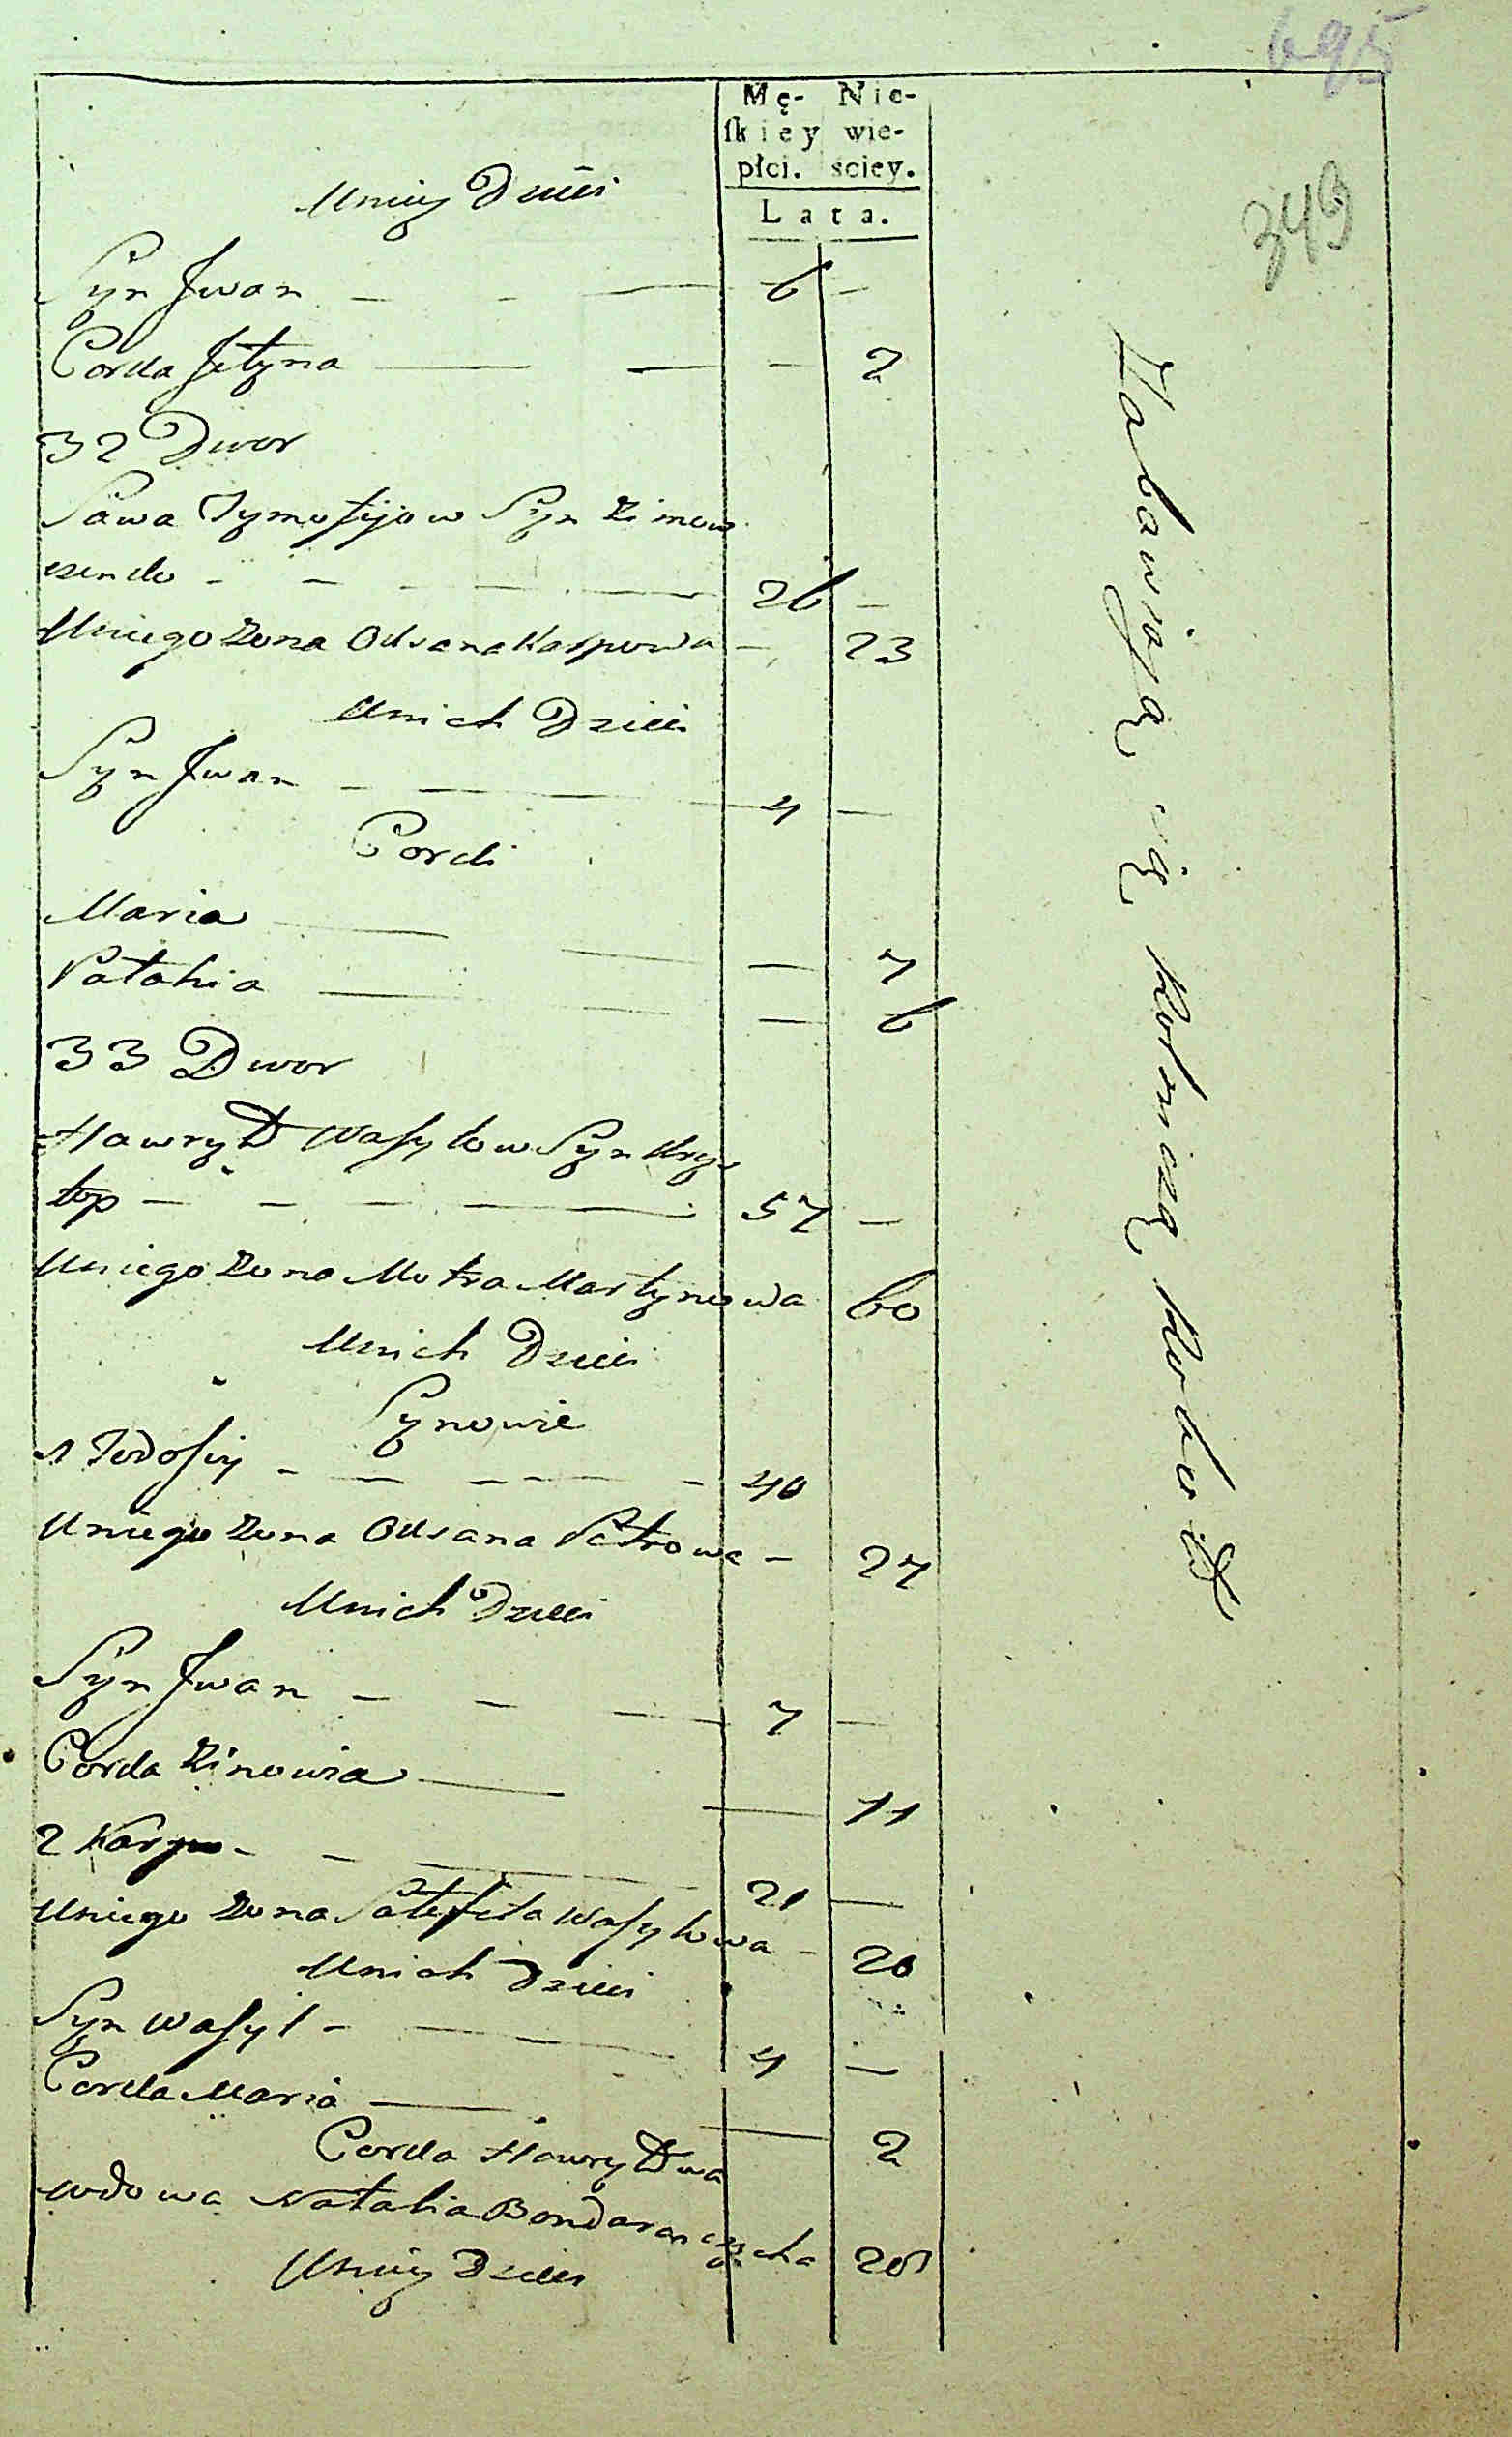 695
349
Mę- Nie-
skiey wie-
płci. sciey.
Lata.
Uniey Dzieci
Syn Jwan — 6 —
Corka Jrtyna — — 2
32 Dwor
Sawa Tymofijow Syn Zimow
czenko — 26 —
Uniego Zona Oksana Karpowa — 23
Unich Dzieci
Syn Jwan — 4 —
Corki
Maria — — 7
Patahia — — 6
33 Dwor
Hawryło Wasylow Syn Kryw
top — 57 —
Uniego Zona Motra Martynowa 60
Unich Dzieci
Synowie
1 Fedosiy — 40
Uniego Zona Oksana Petrowa — 27
Unich Dzieci
Syn Jwan — 7 —
Corka Zinowia — — 11
2 Karpo — 21 —
Uniego Zona Wasylowa — 20
Unich Dzieci
Syn Wasyl — 4 —
Corka Maria — — 2
Corka Hawryłowa
Wdowa Natalia 20
Uniey Dzieci
Zabawiają się Rolniczą Robotą